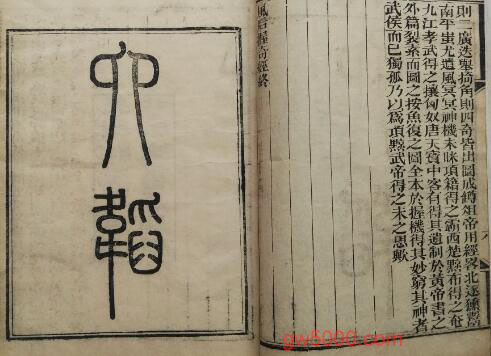 則二廣迭舉掎角則四奇皆出圖成鐏俎帝用經畧北逐獯鬻
南平蚩尤遺風冥冥神機未昧項籍得之霸西楚黥布得之奄
九江孝武得之攘匈奴唐天寶中客有得其遺制於黃帝書之
外篇裂素而圖之按魚復之圖全本於握機得其妙窮其神者
武侯而已獨孤乃以爲項黥武帝得之未之思歟
風后握奇經終
六韜
gw5000.com